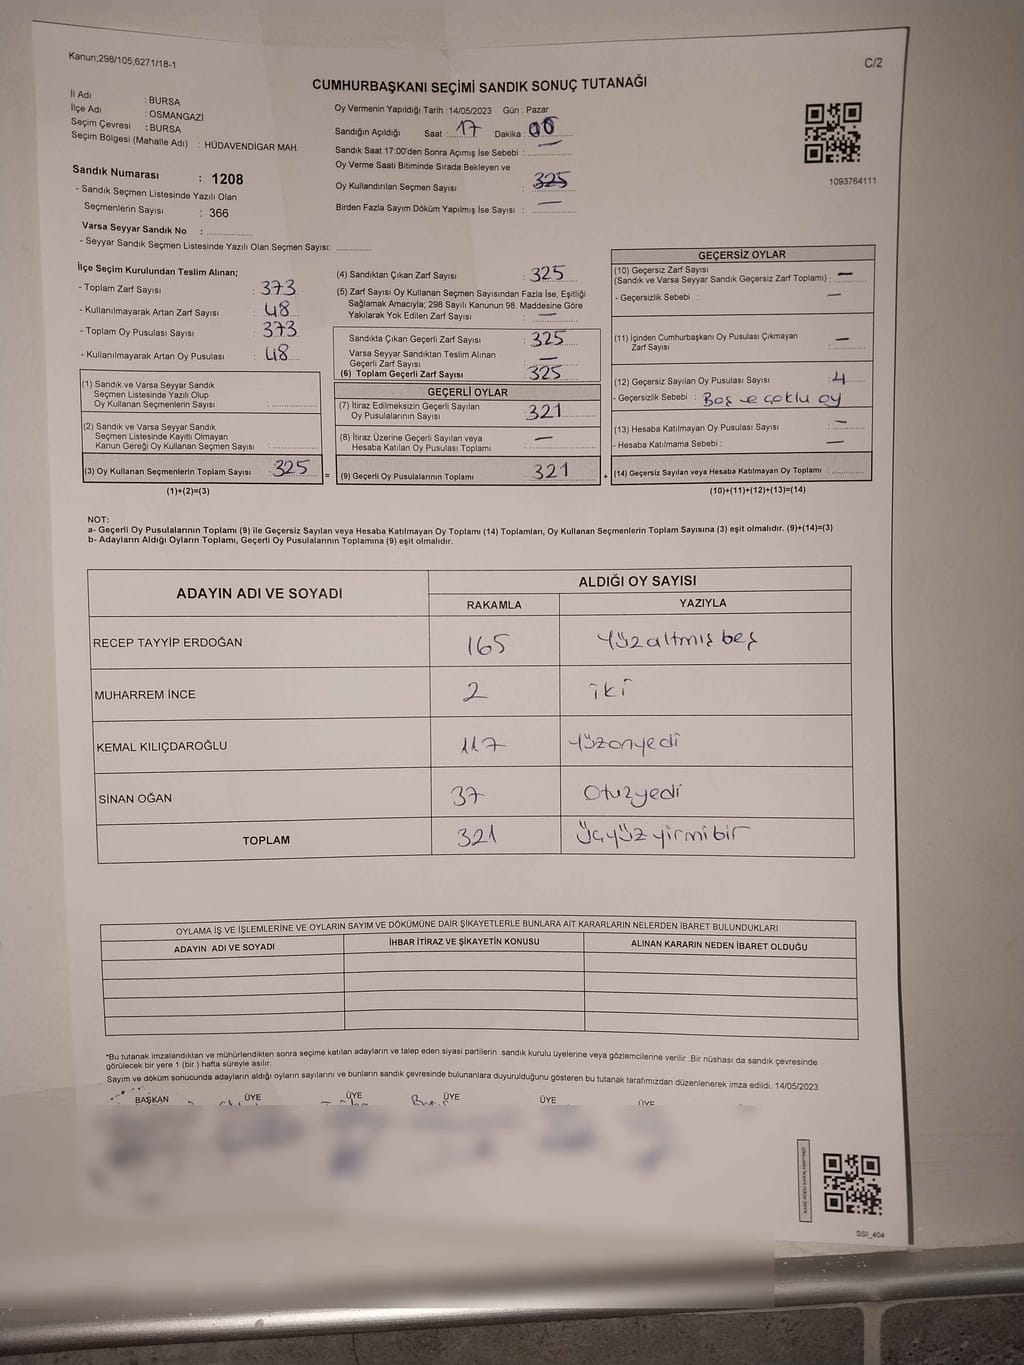 Kanun;298/105;6271/18-1
C/2
CUMHURBAŞKANI SEÇİMİ SANDIK SONUÇ TUTANAĞI
İl Adı : BURSA
İlçe Adı : OSMANGAZİ
Seçim Çevresi : BURSA
Seçim Bölgesi (Mahalle Adı) : HÜDAVENDİGAR MAH.
Sandık Numarası : 1208
- Sandık Seçmen Listesinde Yazılı Olan
Seçmenlerin Sayısı : 366
Varsa Seyyar Sandık No :
- Seyyar Sandık Seçmen Listesinde Yazılı Olan Seçmen Sayısı:
Oy Vermenin Yapıldığı Tarih :14/05/2023 Gün : Pazar
Sandığın Açıldığı Saat : 17 Dakika : 00
Sandık Saat 17:00'den Sonra Açımış İse Sebebi : —
Oy Verme Saati Bitiminde Sırada Bekleyen ve
Oy Kullandırılan Seçmen Sayısı : 325
Birden Fazla Sayım Döküm Yapılmış İse Sayısı : —
1093764111
İlçe Seçim Kurulundan Teslim Alınan;
- Toplam Zarf Sayısı : 373
- Kullanılmayarak Artan Zarf Sayısı : 48
- Toplam Oy Pusulası Sayısı : 373
- Kullanılmayarak Artan Oy Pusulası : 48
(1) Sandık ve Varsa Seyyar Sandık
Seçmen Listesinde Yazılı Olup
Oy Kullanan Seçmenlerin Sayısı :
(2) Sandık ve Varsa Seyyar Sandık
Seçmen Listesinde Kayıtlı Olmayan
Kanun Gereği Oy Kullanan Seçmen Sayısı :
(3) Oy Kullanan Seçmenlerin Toplam Sayısı : 325
(1)+(2)=(3)
(4) Sandıktan Çıkan Zarf Sayısı : 325
(5) Zarf Sayısı Oy Kullanan Seçmen Sayısından Fazla İse, Eşitliği
Sağlamak Amacıyla; 298 Sayılı Kanunun 98. Maddesine Göre
Yakılarak Yok Edilen Zarf Sayısı : —
Sandıkta Çıkan Geçerli Zarf Sayısı : 325
Varsa Seyyar Sandıktan Teslim Alınan
Geçerli Zarf Sayısı : —
(6) Toplam Geçerli Zarf Sayısı : 325
GEÇERLİ OYLAR
(7) İtiraz Edilmeksizin Geçerli Sayılan
Oy Pusulalarının Sayısı : 321
(8) İtiraz Üzerine Geçerli Sayılan veya
Hesaba Katılan Oy Pusulası Toplamı : —
= (9) Geçerli Oy Pusulalarının Toplamı : 321 +
GEÇERSİZ OYLAR
(10) Geçersiz Zarf Sayısı
(Sandık ve Varsa Seyyar Sandık Geçersiz Zarf Toplamı) : —
- Geçersizlik Sebebi : —
(11) İçinden Cumhurbaşkanı Oy Pusulası Çıkmayan
Zarf Sayısı : —
(12) Geçersiz Sayılan Oy Pusulası Sayısı : 4
- Geçersizlik Sebebi : Boş ve çoklu oy
(13) Hesaba Katılmayan Oy Pusulası Sayısı : —
- Hesaba Katılmama Sebebi : —
(14) Geçersiz Sayılan veya Hesaba Katılmayan Oy Toplamı :
(10)+(11)+(12)+(13)=(14)
NOT:
a- Geçerli Oy Pusulalarının Toplamı (9) ile Geçersiz Sayılan veya Hesaba Katılmayan Oy Toplamı (14) Toplamları, Oy Kullanan Seçmenlerin Toplam Sayısına (3) eşit olmalıdır. (9)+(14)=(3)
b- Adayların Aldığı Oyların Toplamı, Geçerli Oy Pusulalarının Toplamına (9) eşit olmalıdır.
ADAYIN ADI VE SOYADI
ALDIĞI OY SAYISI
RAKAMLA YAZIYLA
RECEP TAYYİP ERDOĞAN 165 Yüzaltmış beş
MUHARREM İNCE 2 iki
KEMAL KILIÇDAROĞLU 117 Yüzonyedi
SİNAN OĞAN 37 Otuzyedi
TOPLAM 321 Üçyüz yirmi bir
OYLAMA İŞ VE İŞLEMLERİNE VE OYLARIN SAYIM VE DÖKÜMÜNE DAİR ŞİKAYETLERLE BUNLARA AİT KARARLARIN NELERDEN İBARET BULUNDUKLARI
ADAYIN ADI VE SOYADI İHBAR İTİRAZ VE ŞİKAYETİN KONUSU ALINAN KARARIN NEDEN İBARET OLDUĞU
*Bu tutanak imzalandıktan ve mühürlendikten sonra seçime katılan adayların ve talep eden siyasi partilerin sandık kurulu üyelerine veya gözlemcilerine verilir .Bir nüshası da sandık çevresinde
görülecek bir yere 1 (bir ) hafta süreyle asılır.
Sayım ve döküm sonucunda adayların aldığı oyların sayılarını ve bunların sandık çevresinde bulunanlara duyurulduğunu gösteren bu tutanak tarafımızdan düzenlenerek imza edildi. 14/05/2023
BAŞKAN ÜYE ÜYE ÜYE ÜYE ÜYE
SSI_404